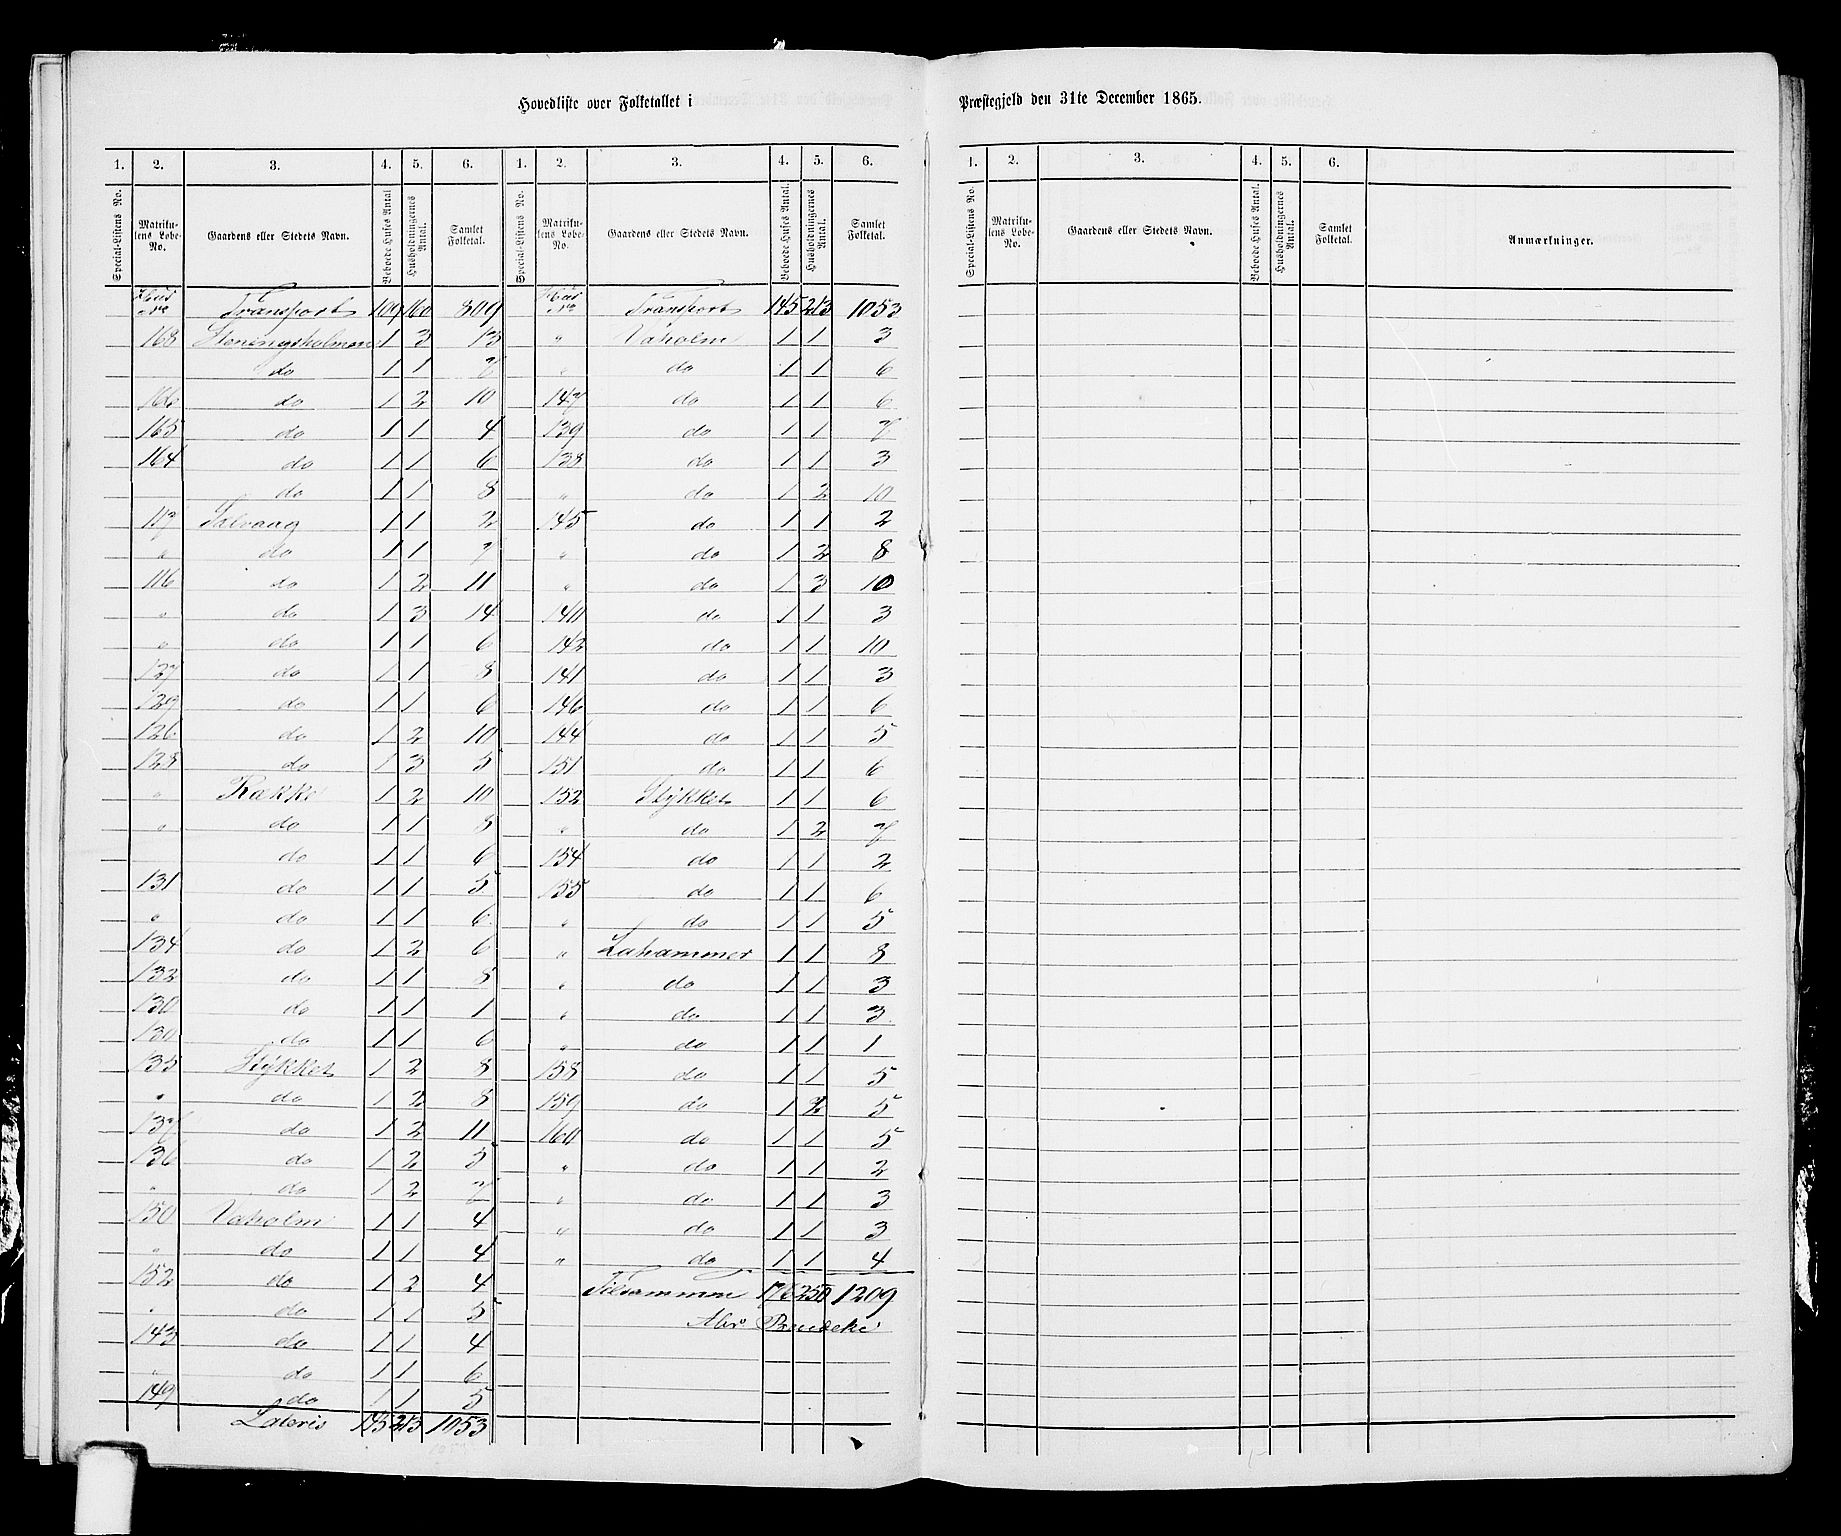 Hovedliste over Folketallet i Præstegjeld den 31te December 1865.
1. 2. 3. 4. 5. 6. 1. 2. 3. 4. 5. 6.
Special-Listens No. Matrikulens Løbe-No. Gaardens eller Stedets Navn. Beboede Huses Antal Husholdningernes Antal. Samlet Folketal. Special-Listens No. Matrikulens Løbe-No. Gaardens eller Stedets Navn. Beboede Huses Antal. Husholdningernes Antal. Samlet Folketal.
Huus No Transport 109 160 809 Huus No Transport 145 213 1053
168 Steningsholmen 1 3 13 " Vaholm 1 1 3
do 1 1 7 " do 1 1 6
166 do 1 2 10 147 do 1 1 6
165 do 1 1 4 139 do 1 1 7
164 do 1 1 6 138 do 1 1 3
do 1 1 8 " do 1 2 10
117 Salvaag 1 1 2 145 do 1 1 2
" do 1 1 7 " do 1 2 8
116 do 1 2 11 " do 1 3 10
" do 1 3 14 140 do 1 1 3
" do 1 1 6 142 do 1 1 10
127 do 1 1 8 141 do 1 1 3
129 do 1 1 6 146 do 1 1 6
126 do 1 2 10 144 do 1 1 5
128 do 1 3 5 151 do 1 1 6
" Række 1 2 10 152 Stÿkket 1 1 6
" do 1 1 8 " do 1 2 7
do 1 1 6 154 do 1 1 2
131 do 1 1 5 155 do 1 1 6
" do 1 1 6 " do 1 1 5
134 do 1 2 6 " Lahammer 1 1 8
132 do 1 1 8 " do 1 1 3
130 do 1 1 1 " do 1 1 3
130 do 1 1 6 " do 1 1 1
135 Stÿkket 1 2 8 158 do 1 1 5
" do 1 2 8 159 do 1 2 5
137 do 1 2 11 160 do 1 1 5
136 do 1 2 5 " do 1 1 2
" do 1 2 7 " do 1 1 3
150 Vaholm 1 1 4 " do 1 1 3
" do 1 1 4 " do 1 1 4
152 do 1 2 4 Tilsammen 176 250 1209
" do 1 1 5
143 do 1 1 4
" do 1 1 6
149 do 1 1 5
Lateris 145 213 1053
1. 2. 3. 4. 5. 6.
Special-Listens No. Matrikulens Løbe-No. Gaardens eller Stedets Navn. Beboede Huses Antal. Husholdningernes Antal. Samlet Folketal. Anmærkninger.